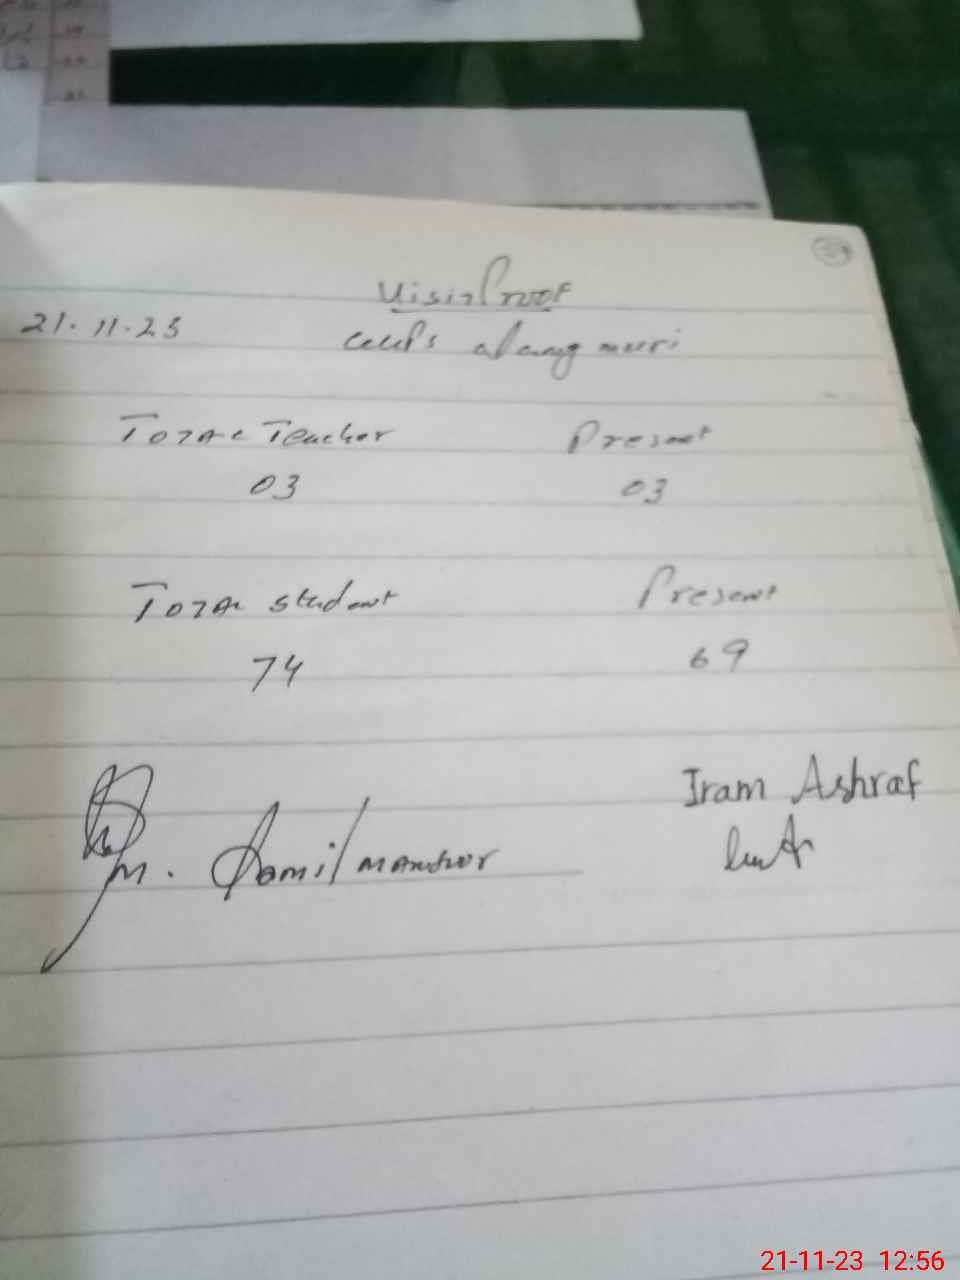 Visit Proof
21.11.23
Total Teacher Present
03 03
Total Student Present
74 69
Iram Ashraf
M. Jamil manzoor
21-11-23 12:56